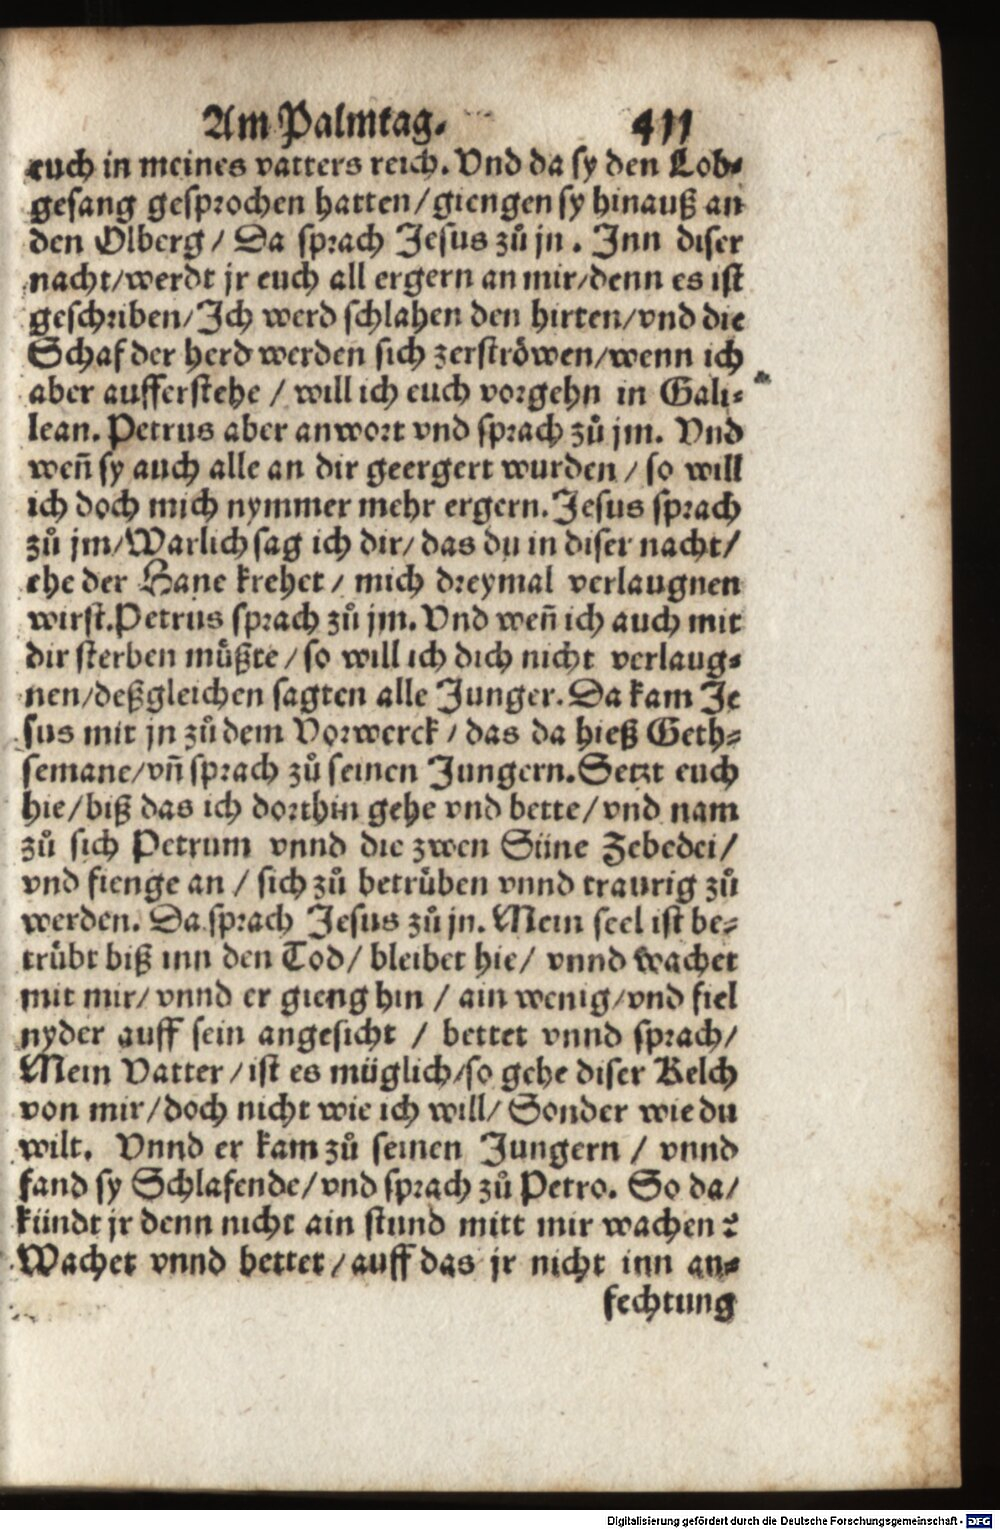 Am Palmtag. 411
euch in meines vatters reich. Vnd da sy den Lob-
gesang gesprochen hatten/giengen sy hinauß an
den Olberg/ Da sprach Jesus zů jn. Inn diser
nacht/werdt jr euch all ergern an mir/denn es ist
geschriben/Ich werd schlahen den hirten/vnd die
Schaf der herd werden sich zerströwen/wenn ich
aber aufferstehe / will ich euch vorgehn in Gali-
lean. Petrus aber anwort vnd sprach zů jm. Vnd
weñ sy auch alle an dir geergert wurden/ so will
ich doch mich nymmer mehr ergern. Jesus sprach
zů jm/Warlich sag ich dir/ das du in diser nacht/
ehe der Hane krehet/ mich dreymal verlaugnen
wirst. Petrus sprach zů jm. Vnd weñ ich auch mit
dir sterben müßte/so will ich dich nicht verlaug-
nen/deßgleichen sagten alle Junger. Da kam Je
sus mit jn zů dem Vorwerck/ das da hieß Geth-
semane/vñ sprach zů seinen Jungern. Setzt euch
hie/biß das ich dorthin gehe vnd bette/vnd nam
zů sich Petrum vnnd die zwen Süne Zebedei/
vnd fienge an / sich zů betrüben vnnd traurig zů
werden. Da sprach Jesus zů jn. Mein seel ist be-
trübt biß inn den Tod/ bleibet hie/ vnnd wachet
mit mir/ vnnd er gieng hin / ain wenig/vnd fiel
nyder auff sein angesicht / bettet vnnd sprach/
Mein Vatter/ist es müglich/so gehe diser Kelch
von mir/doch nicht wie ich will/ Sonder wie du
wilt. Vnnd er kam zů seinen Jungern / vnnd
fand sy Schlafende/vnd sprach zů Petro. So da/
kündt jr denn nicht ain stund mitt mir wachen?
Wachet vnnd bettet/auff das jr nicht inn an-
fechtung
Digitalisierung gefördert durch die Deutsche Forschungsgemeinschaft - DFG